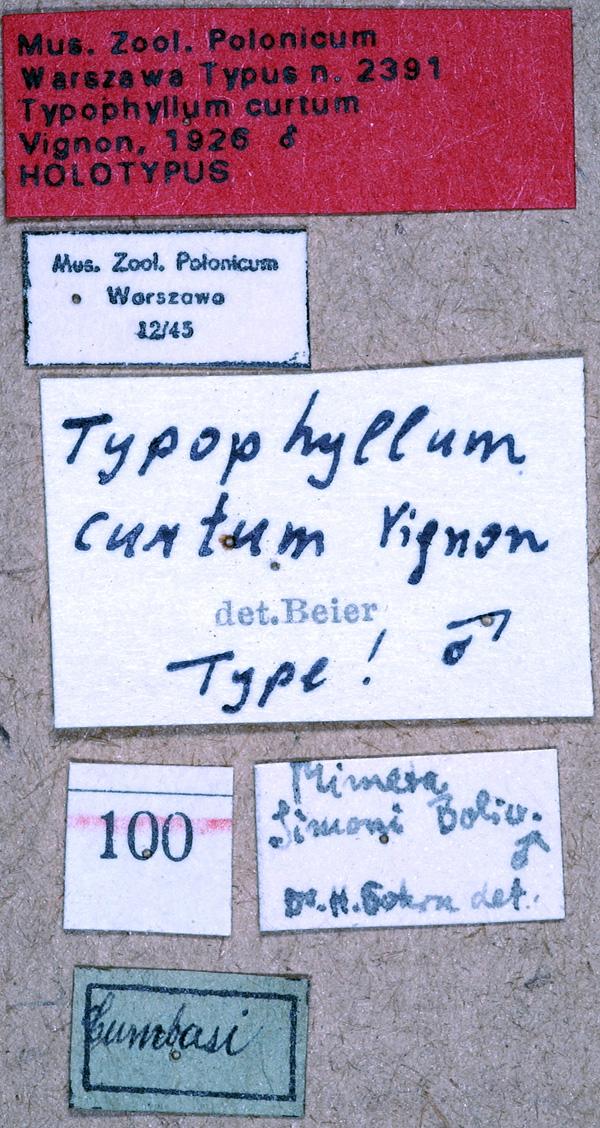 Mus. Zool. Polonicum
Warszawa Typus n. 2391
Typophyllum curtum
Vignon, 1926 ♂
HOLOTYPUS
Mus. Zool. Polonicum
Warszawa
12/45
Typophyllum
curtum Vignon
det. Beier
Type! ♂
100
Mimara
Simoni Boliv.
♂
Dr. H. Dohrn det.
Cumbasi